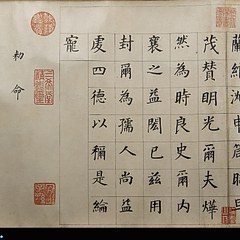 茂贊明光爾夫燁
然為時良史爾內
襄之益閎已茲用
封爾為孺人尚益
虔四德以稱是綸
寵
初命